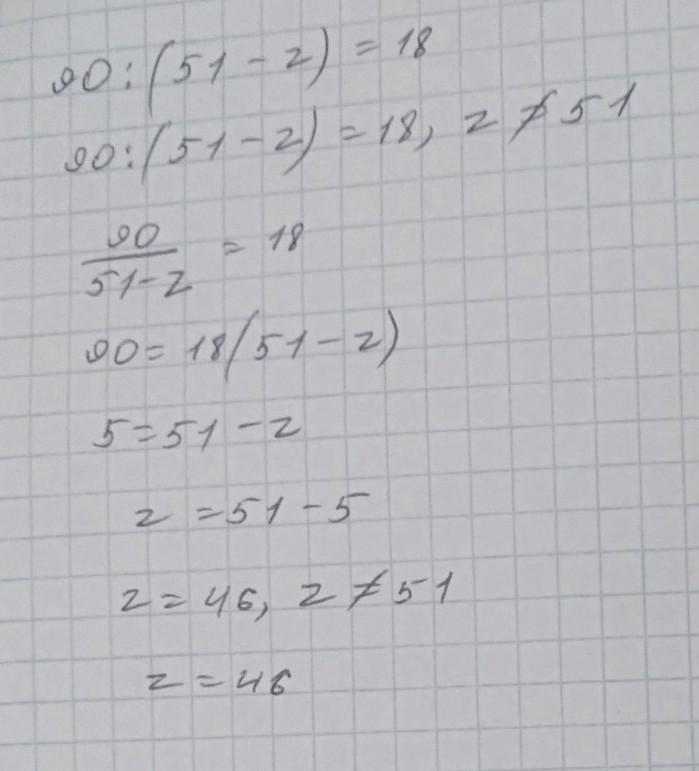 90:(51-z)=18
90:(51-z)=18, z≠51
90/51-z = 18
90=18(51-z)
5=51-z
z=51-5
z=46, z≠51
z=46